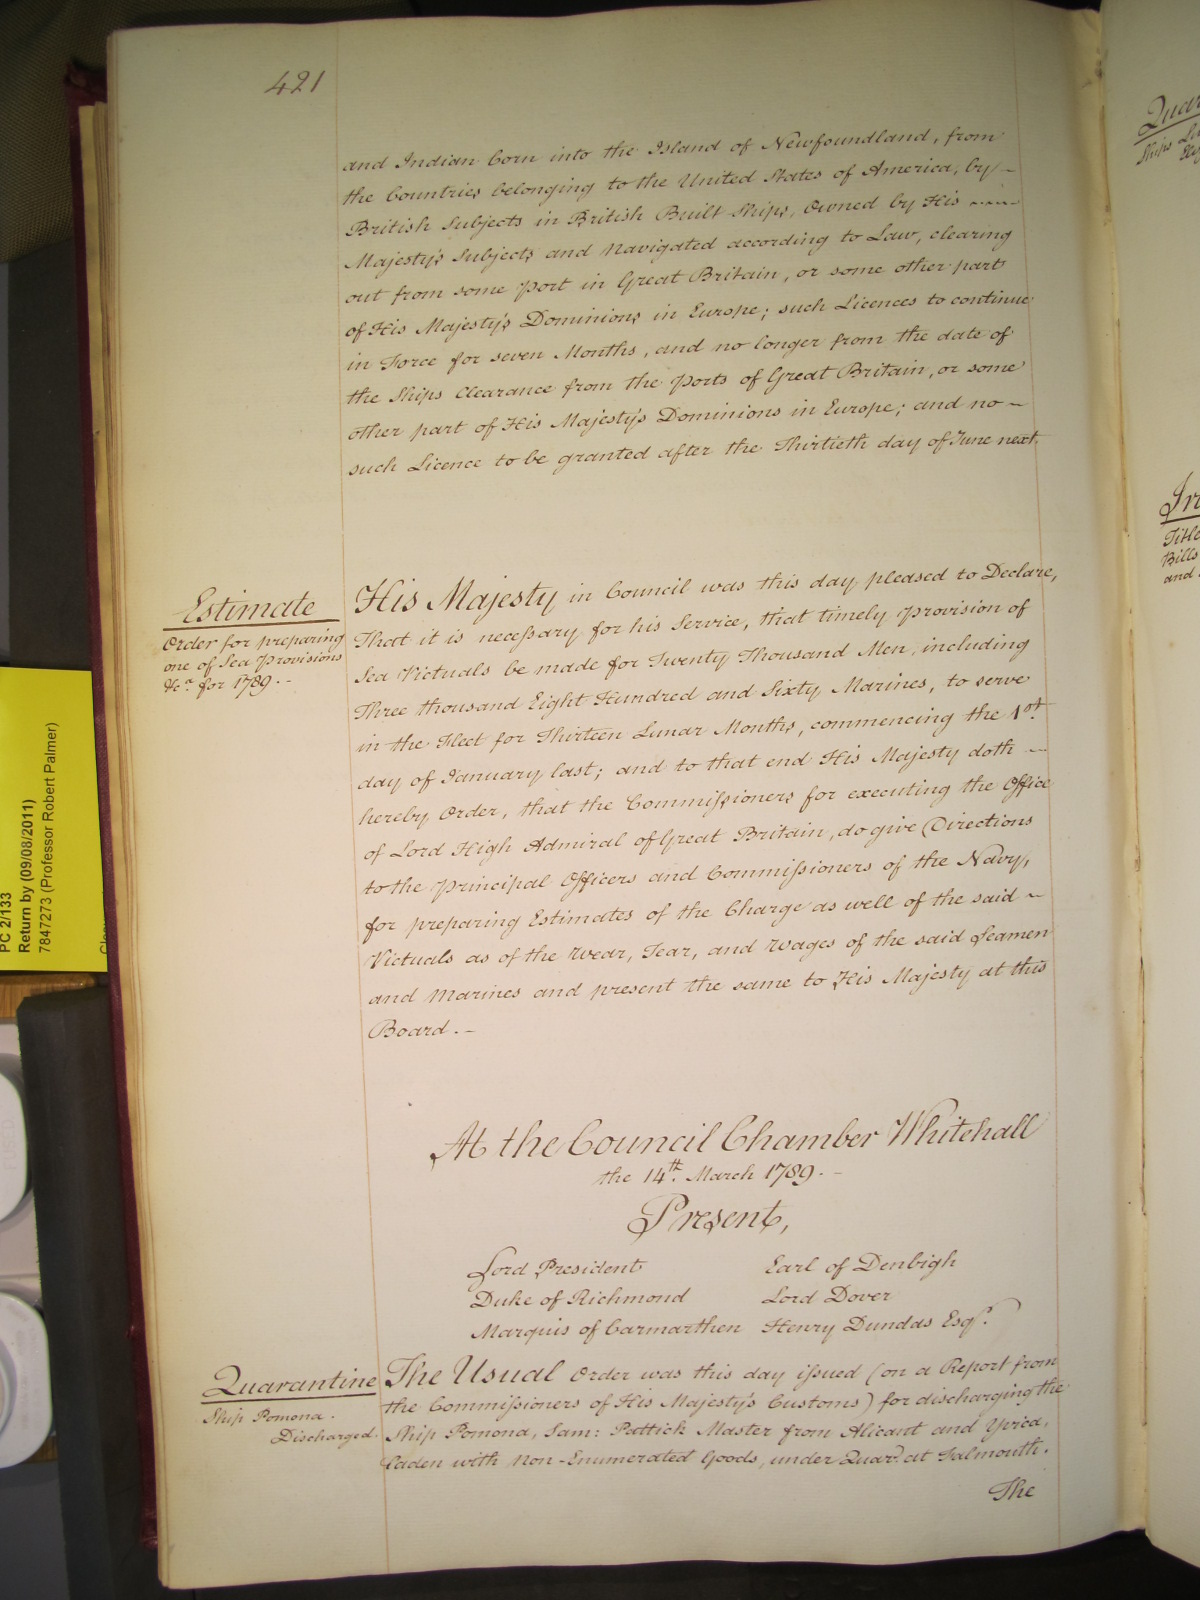 421
and Indian Corn into the Island of Newfoundland, from
the Countries belonging to the United States of America, by
British Subjects in British Built Ships, Owned by His
Majesty's Subjects and Navigated according to Law, clearing
out from some Port in Great Britain, or some other part
of His Majesty's Dominions in Europe; such Licences to continue
in Force for seven Months, and no longer from the date of
the Ships Clearance from the Ports of Great Britain, or some
other part of His Majesty's Dominions in Europe; and no
such Licence to be granted after the Thirtieth day of June next.
Estimate
Order for preparing
one of Sea Provisions
&ca. for 1789.-
His Majesty in Council was this day pleased to Declare,
That it is necessary for his Service, that timely Provision of
Sea Victuals be made for Twenty Thousand Men, including
Three thousand Eight Hundred and Sixty Marines, to serve
in the Fleet for Thirteen Lunar Months, commencing the 1st.
day of January last; and to that end His Majesty doth
hereby Order, that the Commissioners for executing the Office
of Lord High Admiral of Great Britain, do give Directions
to the Principal Officers and Commissioners of the Navy,
for preparing Estimates of the Charge as well of the said
Victuals as of the Wear, Tear, and Wages of the said Seamen
and Marines and present the same to His Majesty at this
Board.-
At the Council Chamber Whitehall
the 14th. March 1789.-
Present,
Lord President Earl of Denbigh
Duke of Richmond Lord Dover
Marquis of Carmarthen Henry Dundas Esqr.
Quarantine
Ship Pomona.
Discharged.
The Usual Order was this day issued (on a Report from
the Commissioners of His Majesty's Customs) for discharging the
Ship Pomona, Sam: Pattick Master from Alicant and Yvica,
laden with Non-Enumerated Goods, under Quare. at Falmouth.
The
PC 2/133
Return by (09/08/2011)
7847273 (Professor Robert Palmer)